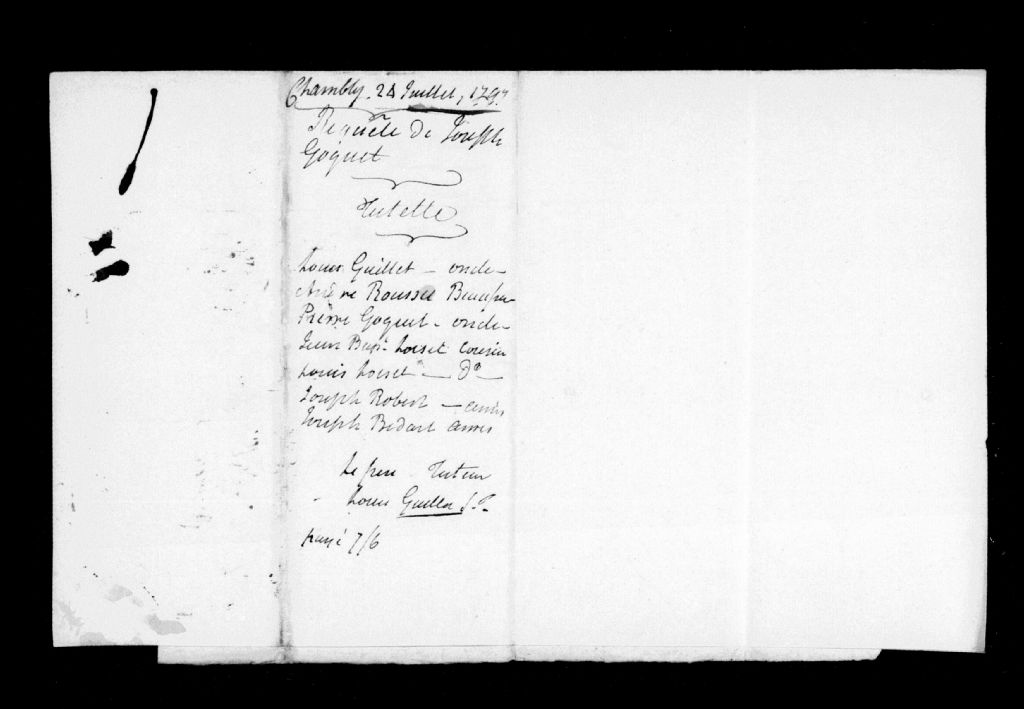 Chambly. 24 Juillet, 1797
Requete de Joseph
Goguet
Tutelle
Louis Guillet – oncle –
André Rousse Beaupere
Pierre Goguet – oncle –
Jean Bapt. Loiset Cousin
Louis Loiset — Do —
Joseph Robert — amis
Joseph Bedart amis
Le pere Tuteur
Louis Guillet S.T.
payé 7/6